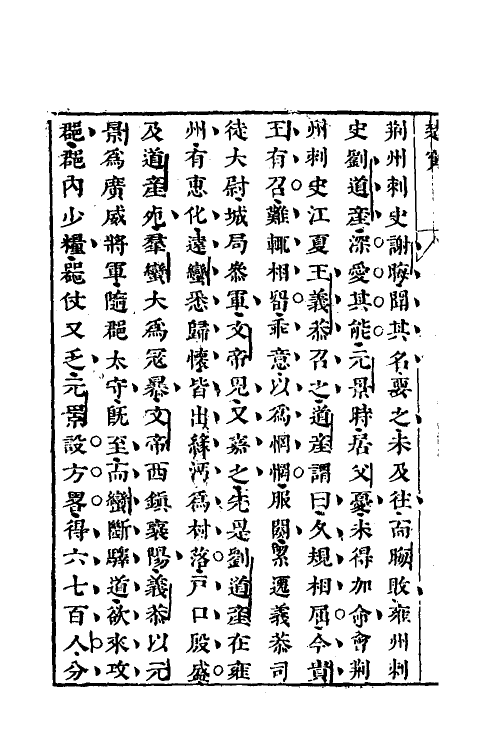 荆州刺史謝晦聞其名要之未及往而晦敗雍州刺
史劉道産深愛其能元景時居父憂未得加命會荆
州刺史江夏王義恭召之道産謂曰久規相屈今貴
王有召難輒相留乖意以爲惘惘服闋累遷義恭司
徒太尉城局叅軍文帝見又嘉之先是劉道産在雍
州有惠化遠蠻悉歸懷皆出緣沔爲村落戸口殷盛
及道産死羣蠻大爲冦暴文帝西鎭襄陽義恭以元
景爲廣威將軍隨郡太守旣至而蠻斷驛道欲來攻
郡郡内少糧器仗又乏元景設方畧得六七百人分